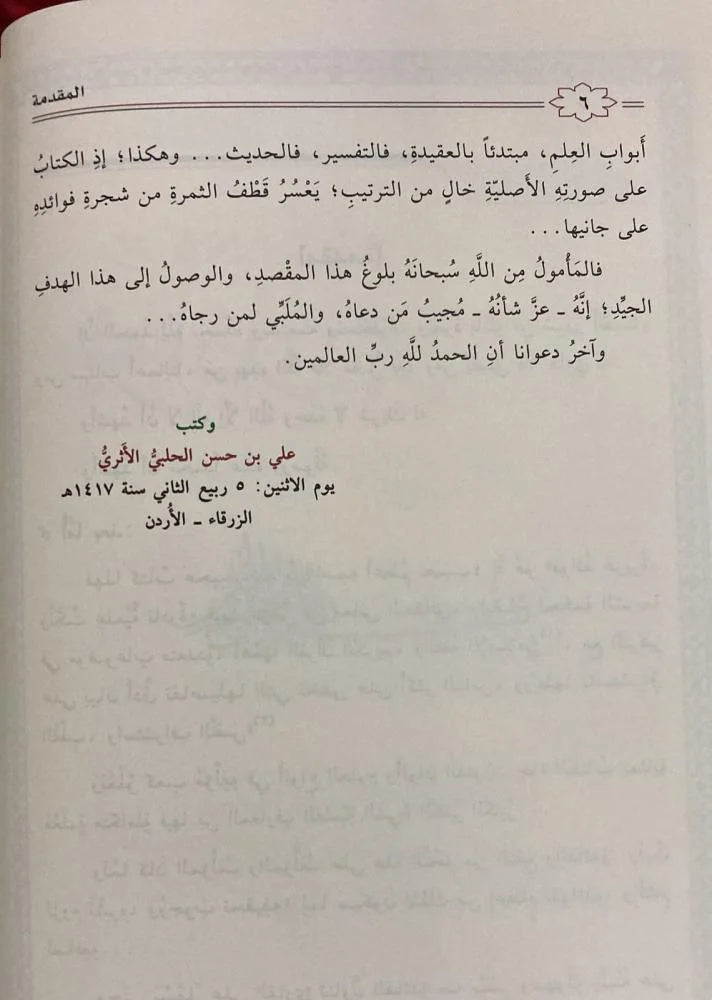 ٦
المقدمة
أَبوابِ العِلمِ، مبتدئاً بالعقيدةِ، فالتفسير، فالحديث... وهكذا؛ إذِ الكتابُ
على صورتِهِ الأَصليّةِ خالٍ من الترتيبِ؛ يَعْسُرُ قَطْفُ الثمرةِ من شجرةِ فوائدِهِ
على جانيها...
فالمَأمولُ مِن اللَّهِ سُبحانَهُ بلوغُ هذا المقْصدِ، والوصولُ إلى هذا الهدفِ
الجيِّدِ؛ إنَّهُ ـ عزَّ شأنُهُ ـ مُجيبُ مَن دعاهُ، والمُلَبِّي لمن رجاهُ...
وآخرُ دعوانا أنِ الحمدُ للَّهِ ربِّ العالمين.
وكتب
علي بن حسن الحلبيُّ الأَثريُّ
يوم الاثنين: ٥ ربيع الثاني سنة ١٤١٧هـ
الزرقاء ـ الأُردن